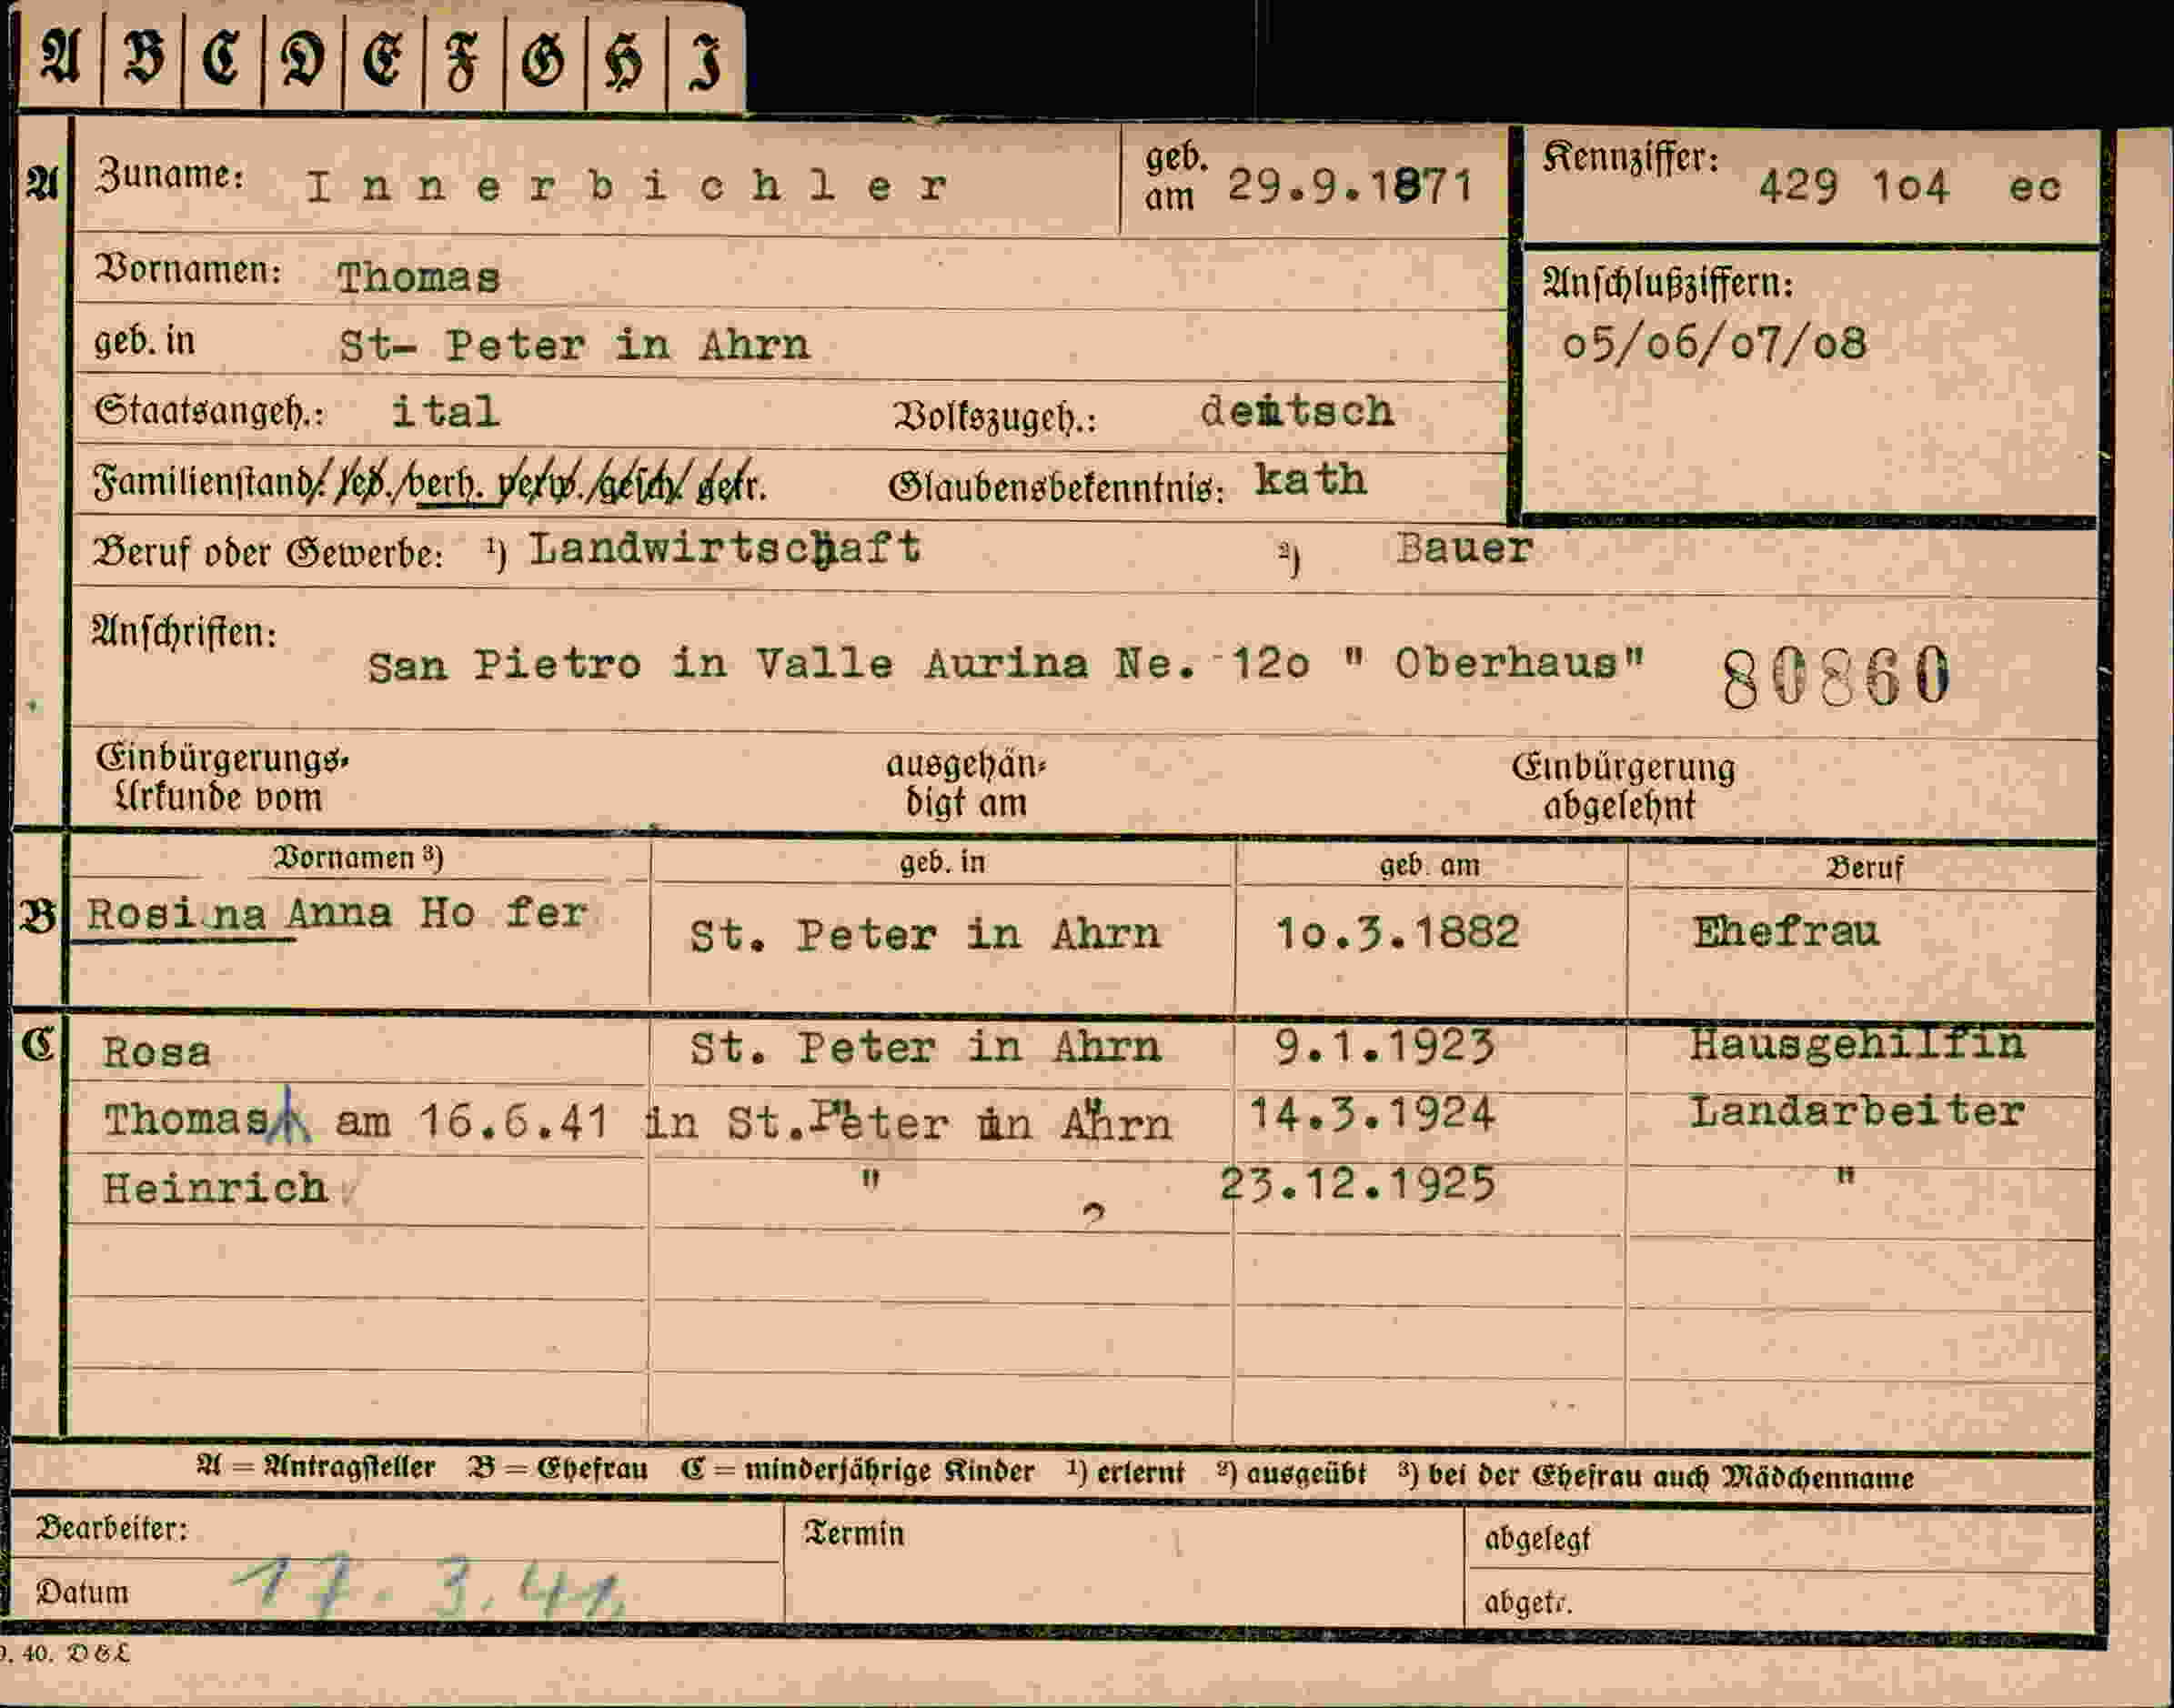 A B C D E F G H I
A Zuname: Innerbichler geb. am 29.9.1871 Kennziffer: 429 1o4 ec
Vornamen: Thomas
Anschlußziffern:
geb. in St- Peter in Ahrn o5/o6/o7/o8
Staatsangeh.: ital Volkszugeh.: deutsch
Familienstand: led. verh. verw. gesch. getr. Glaubensbekenntnis: kath
Beruf oder Gewerbe: ¹) Landwirtschaft ²) Bauer
Anschriften:
San Pietro in Valle Aurina Ne. 12o " Oberhaus" 80860
Einbürgerungs- ausgehän- Einbürgerung
Urkunde vom digt am abgelehnt
Vornamen ³) geb. in geb. am Beruf
B Rosina Anna Ho fer St. Peter in Ahrn 1o.3.1882 Ehefrau
C Rosa St. Peter in Ahrn 9.1.1923 Hausgehilfin
Thomas am 16.6.41 in St.Peter in Ahrn 14.3.1924 Landarbeiter
Heinrich " 23.12.1925 "
?
A = Antragsteller B = Ehefrau C = minderjährige Kinder ¹) erlernt ²) ausgeübt ³) bei der Ehefrau auch Mädchenname
Bearbeiter: Termin abgelegt
Datum 17.3.41. abgetr.
40. D&L